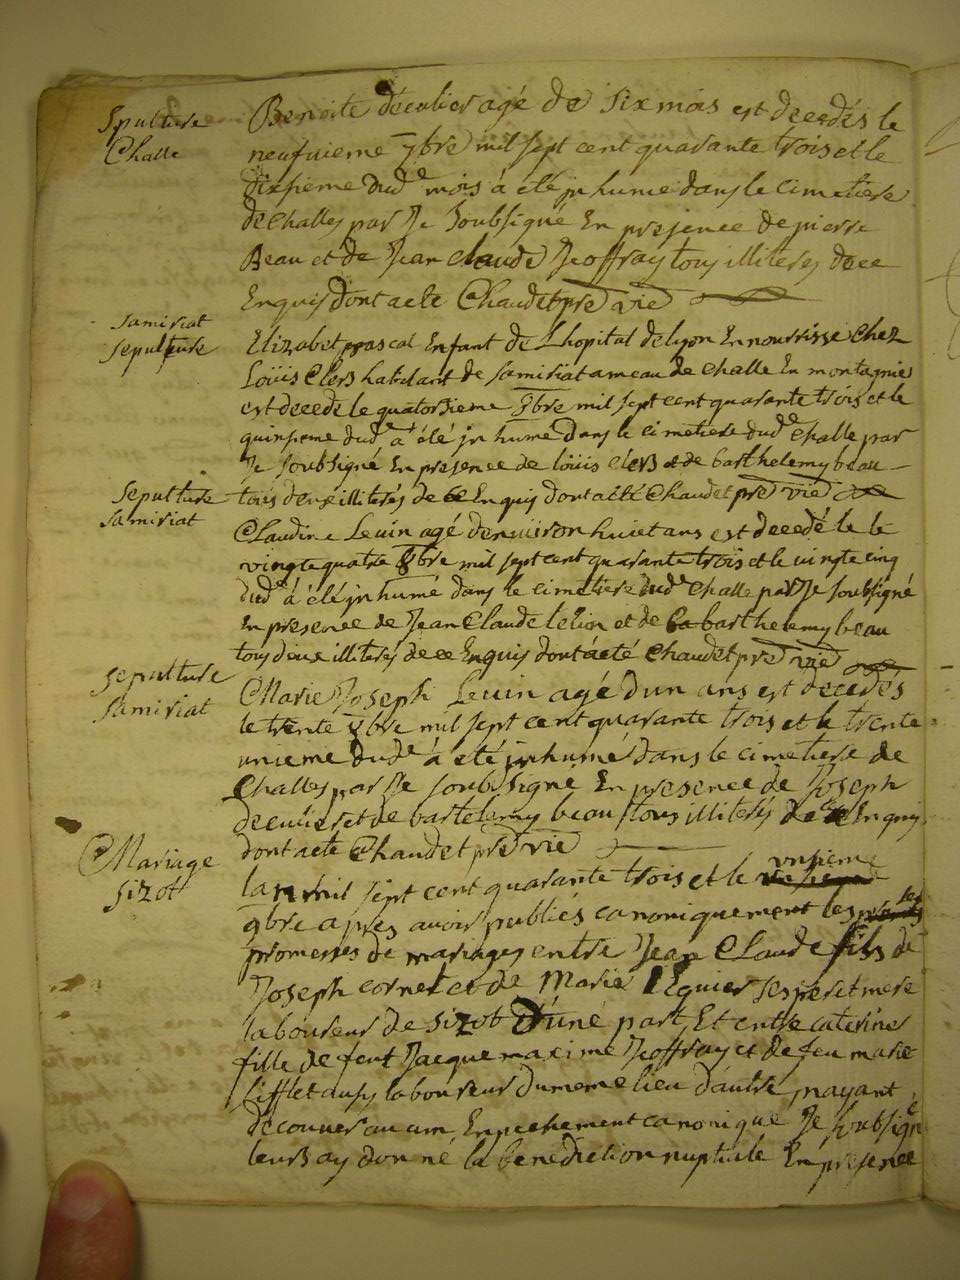 Spulture
Challe
Benoite décultier agé de six mois est decedés le
neufvieme 7bre mil sept cent quarante trois et le
dixsieme dud.e mois à été jnhumé dans le cimetiere
de challes par Je soubsigné En presence de pierre
Beau et de Jean claude Jeoffray tous illiterés de ce
Enquis dont acte Chaudet pre vic
samiriat
sepulture
Elizabet pascal Enfant de Lhopital de lyon En nourrisse chez
Loüis Clers habitant de samiriat ameau de challe En montagnie
est decede le quatorsieme 7bre mil sept cent quarante trois et le
quinsieme dud.e a été jnhumé dans le cimetiere dud.e challe par
Je soubsigné En presence de loüis clers et de barthelemy beau
tous deux illiterés de ce Enquis dont acté Chaudet pre vic
sepulture
samiriat
Claudine Levin agé denviron huict ans est decedé le le
vingte quatre 8bre mil sept cent quarante trois et le vingte cinq
dud.e à été jnhumé dans le cimetiere dud.e challe par Je soubsigné
En presence de Jean Claude lelion et de barthelemy beau
tous deux illiterés de ce Enquis dont acté Chaudet pre vic
sepulture
samiriat
Marie Joseph Levin agé dun ans est decedés
le trente 8bre mil sept cent quarante trois et le trente
unieme dud.e à été jnhumé dans le cimetiere de
Challes par Je soubsigné En presence de Joseph
et de bartelemy beau tous illiterés de ce Enquis
dont acte Chaudet pre vic
Mariage
sizot
lan mil sept cent quarante trois et le unsieme
9bre apres avoir publiés canoniquement les
promesses de mariages entre Jean Claude fils de
Joseph cornet et de Marie Eguier ses pere et mere
laboureur de sizot d'une part Et entre caterine
fille de feut Jacque maxime Jeoffray et de feu marie
lifflet aussy laboureur du meme lieu d'autre nayant
decouver aucun Enpechement canonique Je soubsigné
leurs ay donné la benediction nuptiale En presence